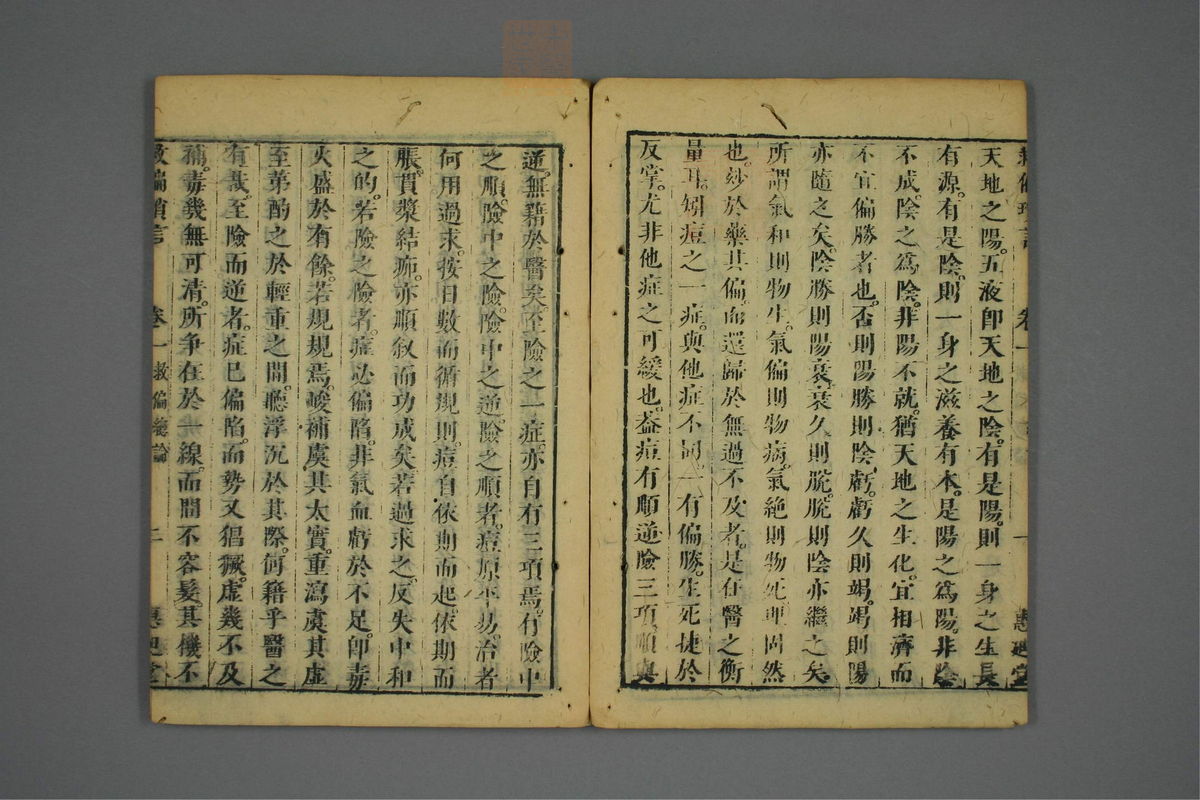 天地之陽。五液卽天地之陰。有是陽。則一身之生長
有源。有是陰。則一身之滋養有本。是陽之爲陽。非陰
不成。陰之爲陰。非陽不就。猶天地之生化。宜相濟而
不宜偏勝者也。否則陽勝則陰虧。虧久則竭。竭則陽
亦隨之矣。陰勝則陽衰。衰久則脫。脫則陰亦繼之矣。
所謂氣和則物生。氣偏則物病。氣絶則物死理固然
也。玅於藥其偏。而還歸於無過不及者。是在醫之衡
量耳。矧痘之一症。與他症不同。一有偏勝。生死捷於
反掌。尤非他症之可緩也。葢痘有順逆險三項。順與
通。無藉於醫矣。至險之一症。亦自有三項焉。有險中
之順。險中之險。險中之逆。險之順者。痘原平易。治者
何用過求。按日數而循規則。痘自依期而起。依期而
脹。貫漿結痂。亦順叙而功成矣。若過求之。反失中和
之的。若險之險者。症必偏陷。非氣血虧於不足。卽毒
火盛於有餘。若規規焉。峻補虞其太實。重瀉虞其虛
至。第酌之於輕重之間。聽浮沉於其際。何籍乎醫之
有哉。至險而逆者。症已偏陷。而勢又猖獗。虛幾不及
補。毒幾無可清。所爭在於一線。而間不容髮。其機不
救偏瑣言 卷一 救偏總論 二